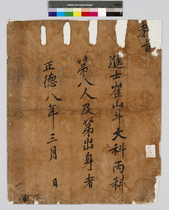 敎旨
進士崔山斗文科丙科
第八人及第出身者
正德八年 三月 日